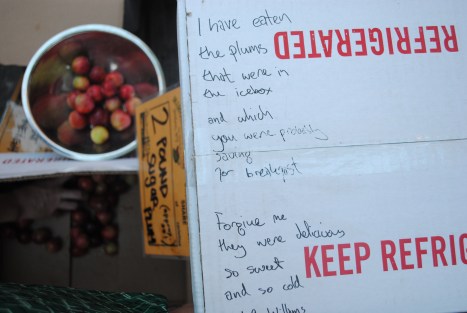 I have eaten
the plums
that were in
the icebox
and which
you were probably
saving
for breakfast
Forgive me
they were delicious
so sweet
and so cold
REFRIGERATED
KEEP REFRIG
2
POUND
SUGAR